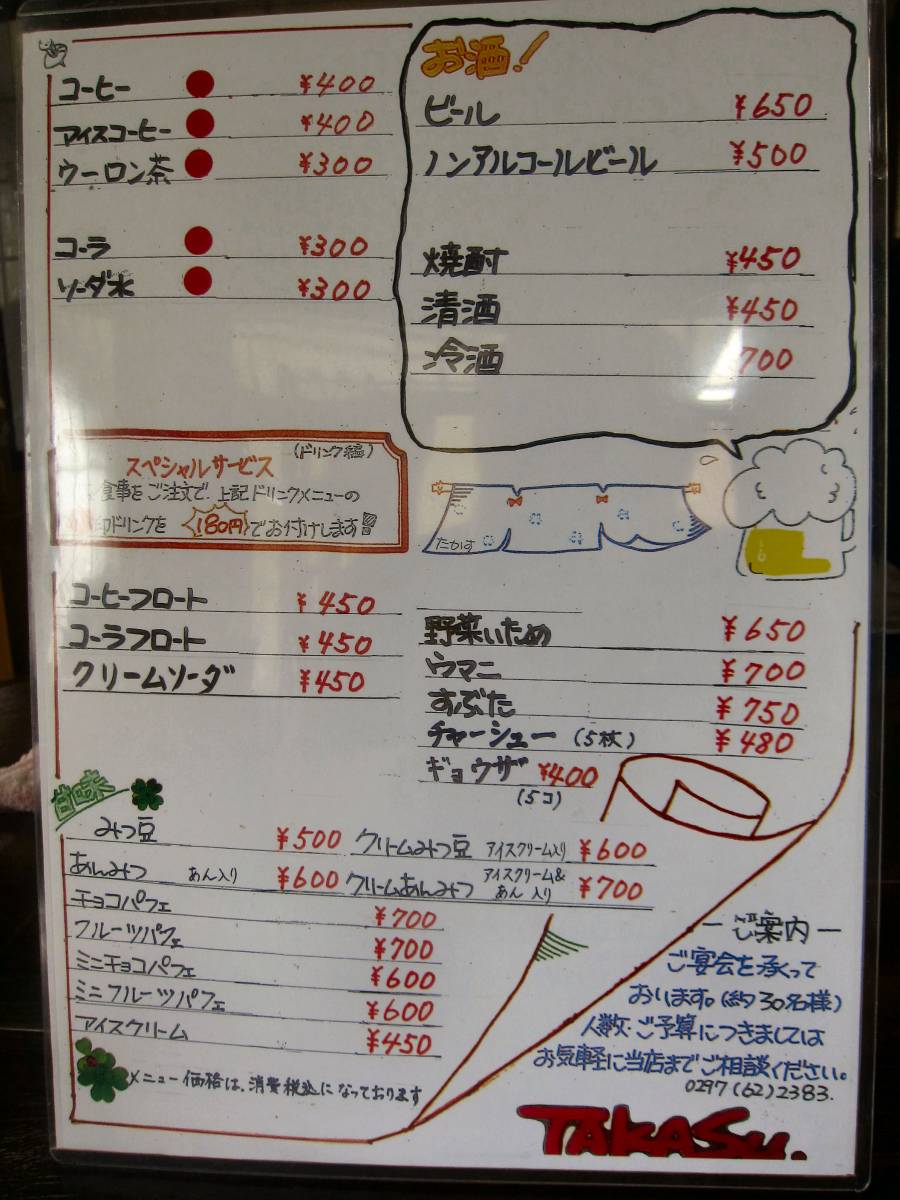 コーヒー ¥400
アイスコーヒー ¥400
ウーロン茶 ¥300
コーラ ¥300
ソーダ水 ¥300
お酒!
ビール ¥650
ノンアルコールビール ¥500
焼酎 ¥450
清酒 ¥450
冷酒 700
(ドリンク編)
スペシャルサービス
食事をご注文で、上記ドリンクメニューの
印ドリンクを 180円 でお付けします!!
たかす
コーヒーフロート ¥450
コーラフロート ¥450
クリームソーダ ¥450
野菜いため ¥650
ウマニ ¥700
すぶた ¥750
チャーシュー (5枚) ¥480
ギョウザ ¥400
(5コ)
甘味
みつ豆 ¥500 クリームみつ豆 アイスクリーム入り ¥600
あんみつ あん入り ¥600 クリームあんみつ アイスクリーム&あん入り ¥700
チョコパフェ ¥700
フルーツパフェ ¥700
ミニチョコパフェ ¥600
ミニフルーツパフェ ¥600
アイスクリーム ¥450
メニュー価格は、消費税込になっております
― ご案内 ―
ご宴会を承って
おります。(約30名様)
人数・ご予算につきましては
お気軽に当店までご相談ください。
0297(62)2383.
TAKASU.